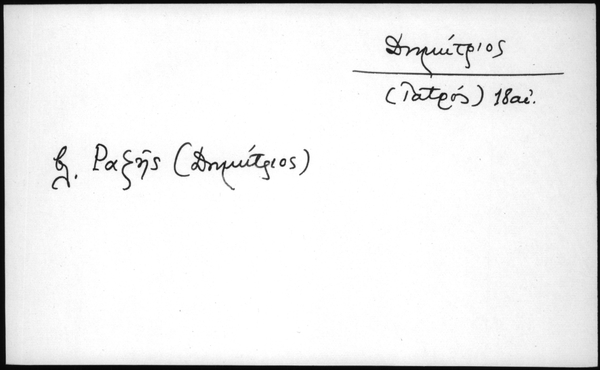 Δημήτριος
(Ἰατρός) 18 αἰ.
βλ. Ραζῆς (Δημήτριος)